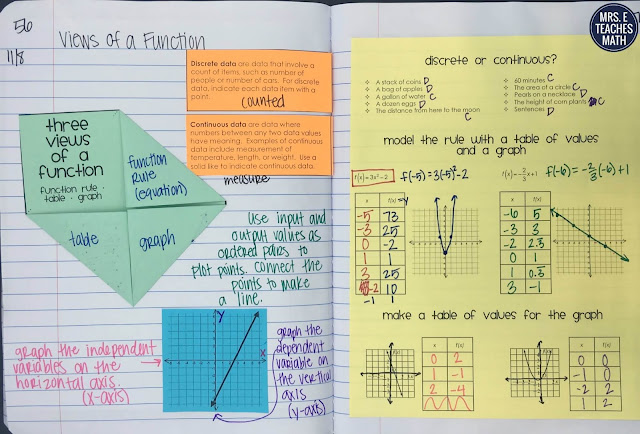 56
11/8
Views of a Function
Discrete data are data that involve a
count of items, such as number of
people or number of cars. For discrete
data, indicate each data item with a
point.
counted
Continuous data are data where
numbers between any two data values
have meaning. Examples of continuous
data include measurement of
temperature, length, or weight. Use a
solid line to indicate continuous data.
measure
three
views
of a
function
function rule ·
table · graph
function
Rule
(equation)
table
graph
Use input and
output values as
ordered pairs to
plot points. Connect the
points to make
a line.
graph the independent
variables on the
horizontal axis.
(x-axis)
y
x
graph the
dependent
variable on
the vertical
axis
(y-axis)
MRS. E
TEACHES
MATH
discrete or continuous?
A stack of coins D
A bag of apples D
A gallon of water C
A dozen eggs D
The distance from here to the moon
C
60 minutes C
The area of a circle C
Pearls on a necklace D
The height of corn plants C
Sentences D
model the rule with a table of values
and a graph
f(x) = 3x² - 2
f(-5) = 3(-5)² - 2
x f(x) =y
-5 73
-3 25
0 -2
1 1
3 25
-2 10
-1 1
f(x) = -2/3 x + 1
f(-6) = -2/3(-6) + 1
x f(x)
-6 5
-3 3
-2 2.3
0 1
1 0.3
3 -1
make a table of values for the graph
x f(x)
0 2
1 -1
2 -4
x f(x)
0 0
-1 0
-2 2
1 2